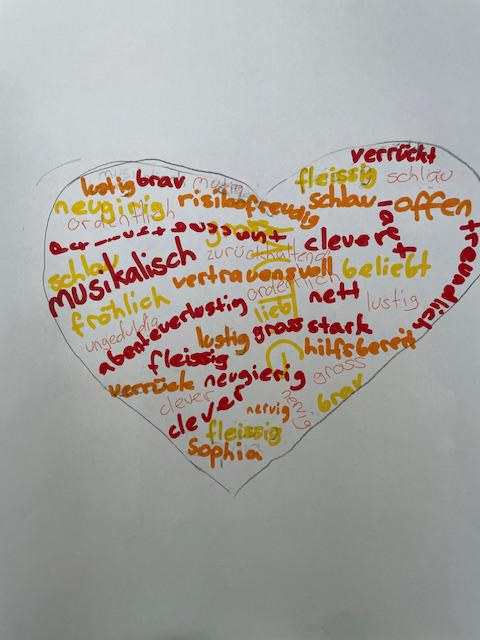 verrückt
lustig brav mutig fleissig schlau
neugirig risikofreudig schlau offen
ordentlich
zurückhaltend clever
schlau musikalisch vertrauensvoll beliebt freundlich
fröhlich ordentlich nett lustig
ungeduldig abenteuerlustig lieb
lustig gross stark
fleissig hilfsbereit
verrück neugierig gross
clever brav
clever nervig nervig
fleissig
Sophia